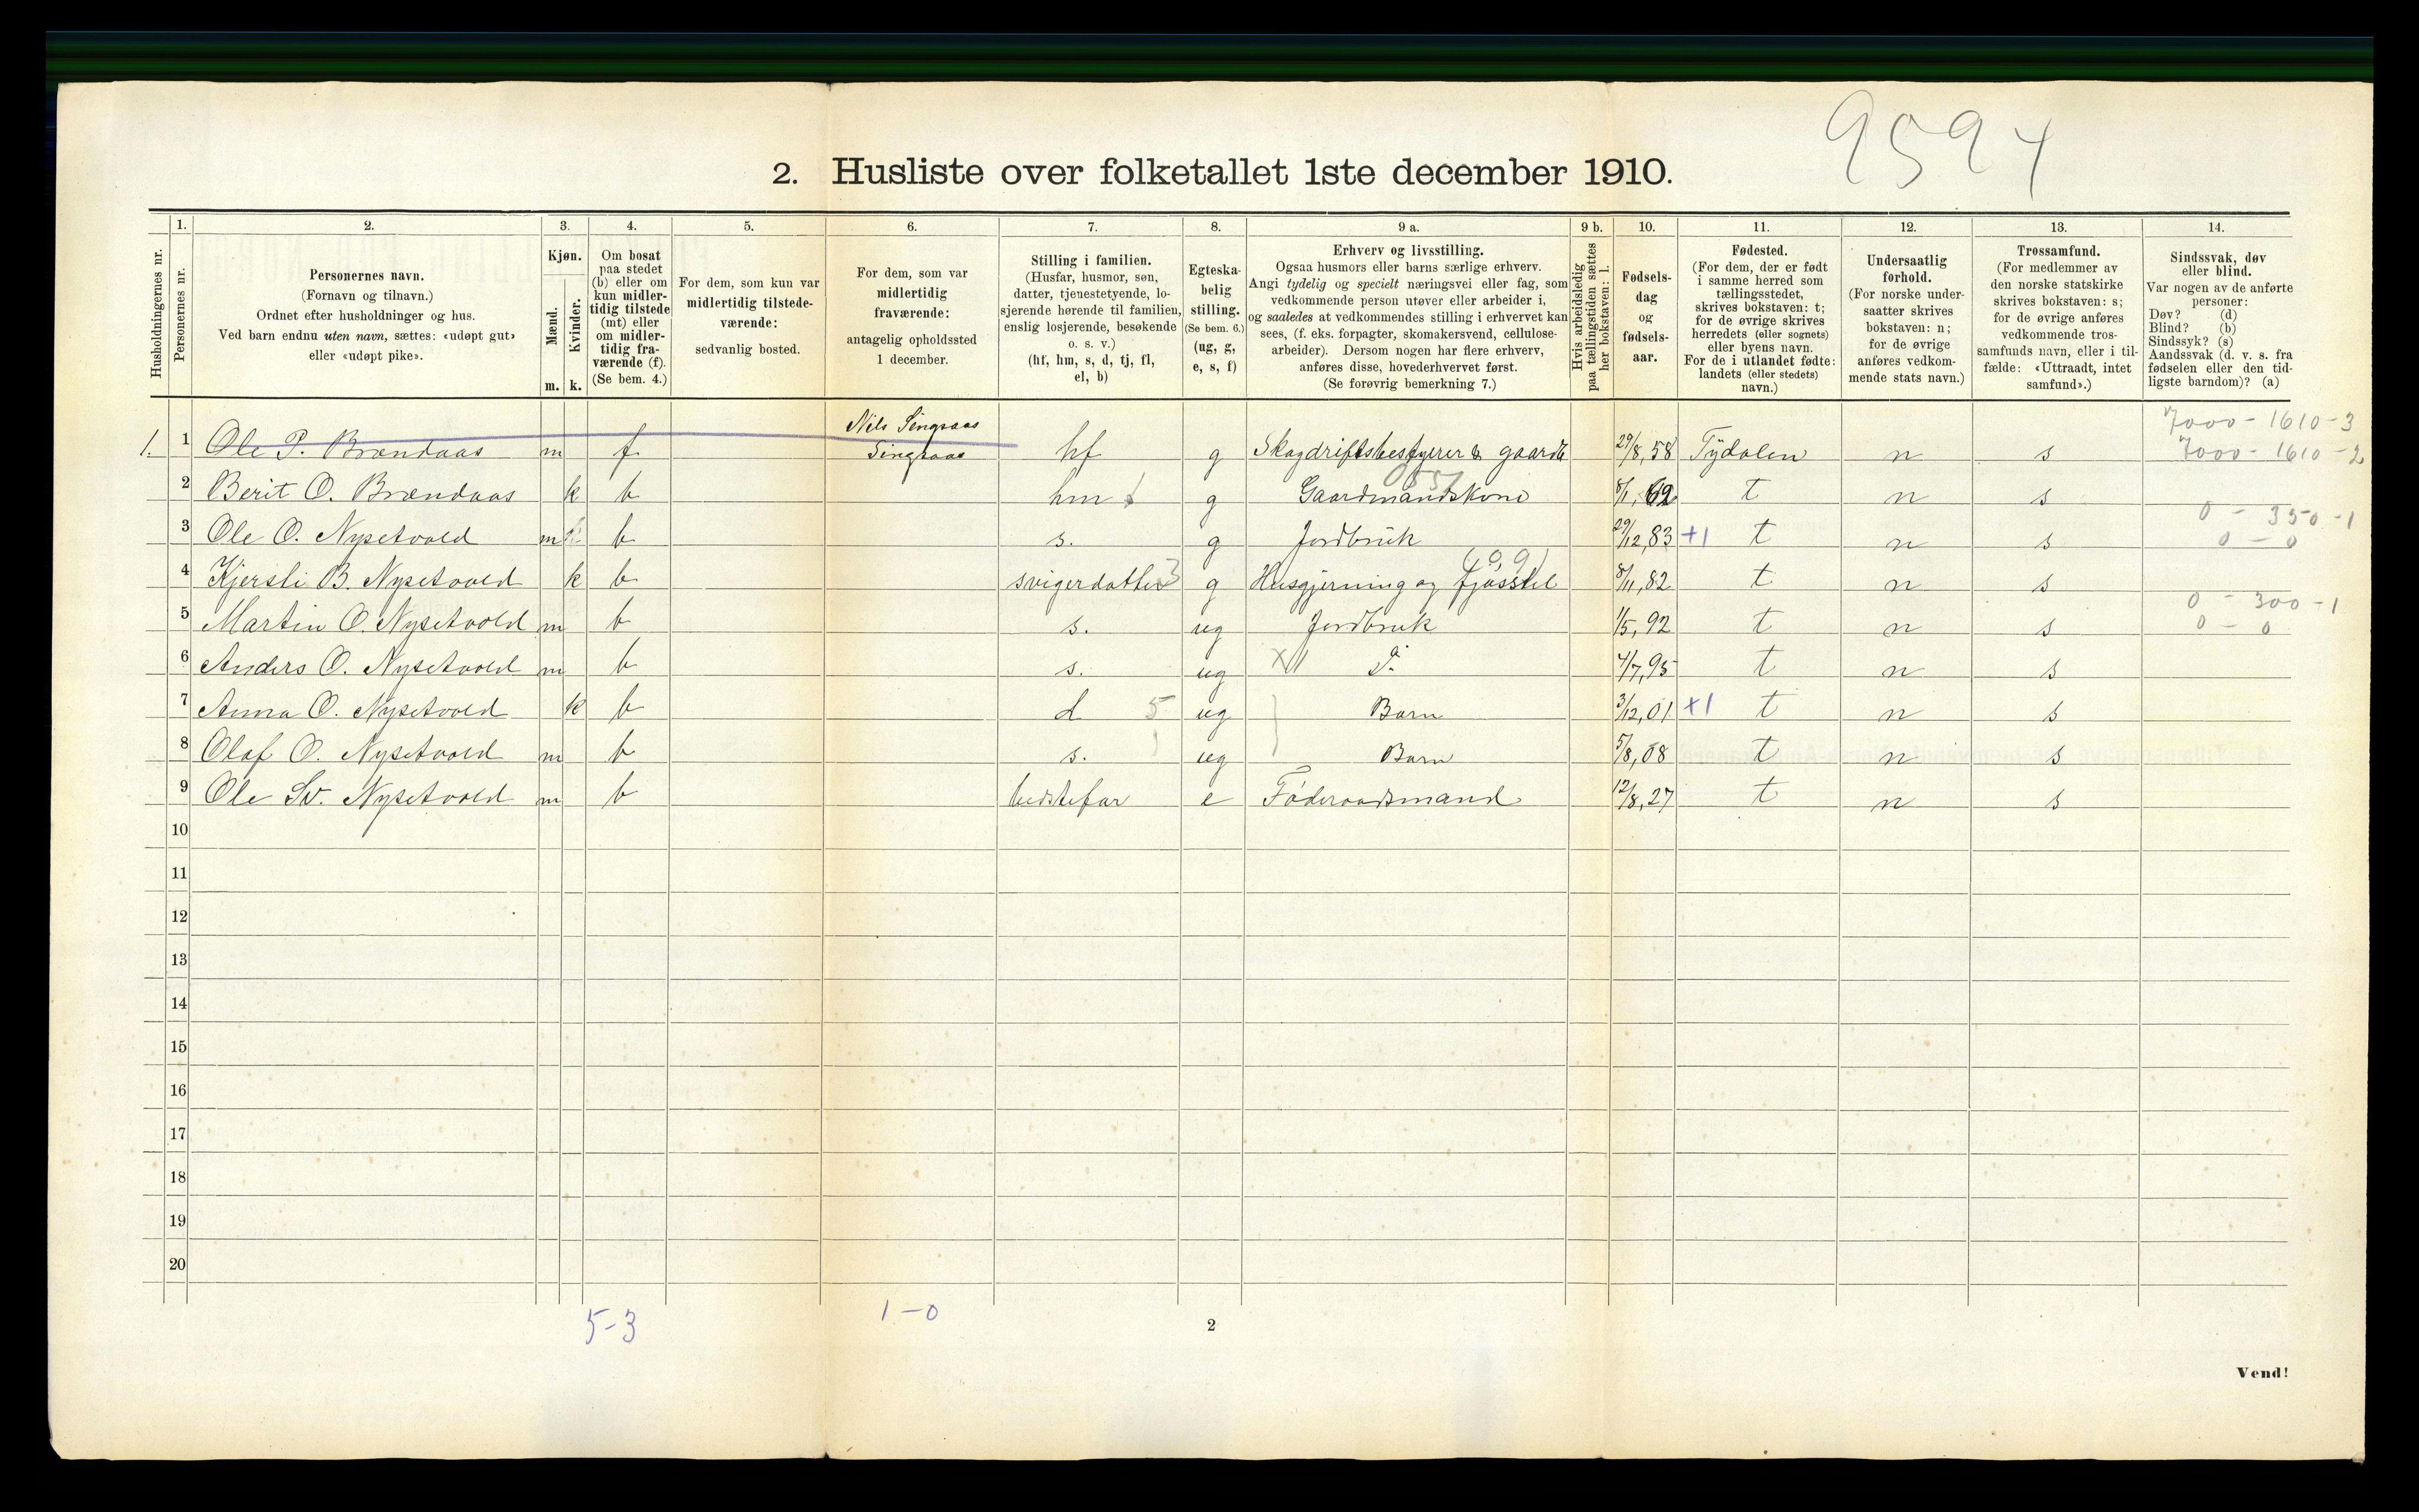 9594
2. Husliste over folketallet 1ste december 1910.
1. 2. 3. 4. 5. 6. 7. 8. 9 a. 9 b. 10. 11. 12. 13. 14.
Husholdningernes nr.
Personernes nr.
Personernes navn.
(Fornavn og tilnavn.)
Ordnet efter husholdninger og hus.
Ved barn endnu uten navn, sættes: «udøpt gut»
eller «udøpt pike».
Kjøn.
Mænd.
Kvinder.
m. k.
Om bosat
paa stedet
(b) eller om
kun midler-
tidig tilstede
(mt) eller
om midler-
tidig fra-
værende (f).
(Se bem. 4.)
For dem, som kun var
midlertidig tilstede-
værende:
sedvanlig bosted.
For dem, som var
midlertidig
fraværende:
antagelig opholdssted
1 december.
Stilling i familien.
(Husfar, husmor, søn,
datter, tjenestetyende, lo-
sjerende hørende til familien,
enslig losjerende, besøkende
o. s. v.)
(hf, hm, s, d, tj, fl,
el, b)
Egteska-
belig
stilling.
(Se bem. 6.)
(ug, g,
e, s, f)
Erhverv og livsstilling.
Ogsaa husmors eller barns særlige erhverv.
Angi tydelig og specielt næringsvei eller fag, som
vedkommende person utøver eller arbeider i,
og saaledes at vedkommendes stilling i erhvervet kan
sees, (f. eks. forpagter, skomakersvend, cellulose-
arbeider). Dersom nogen har flere erhverv,
anføres disse, hovederhvervet først.
(Se forøvrig bemerkning 7.)
Hvis arbeidsledig
paa tællingstiden sættes
her bokstaven: l.
Fødsels-
dag
og
fødsels-
aar.
Fødested.
(For dem, der er født
i samme herred som
tællingsstedet,
skrives bokstaven: t;
for de øvrige skrives
herredets (eller sognets)
eller byens navn.
For de i utlandet fødte:
landets (eller stedets)
navn.)
Undersaatlig
forhold.
(For norske under-
saatter skrives
bokstaven: n;
for de øvrige
anføres vedkom-
mende stats navn.)
Trossamfund.
(For medlemmer av
den norske statskirke
skrives bokstaven: s;
for de øvrige anføres
vedkommende tros-
samfunds navn, eller i til-
fælde: «Uttraadt, intet
samfund».)
Sindssvak, døv
eller blind.
Var nogen av de anførte
personer:
Døv? (d)
Blind? (b)
Sindssyk? (s)
Aandssvak (d. v. s. fra
fødselen eller den tid-
ligste barndom)? (a)
Nils Singsaas 7000 - 1610 - 3
1. 1 Ole P. Brændaas m f Singsaas hf g Skogdriftsbestyrer & gaardb 29/8, 58 Tydalen n s 7000 - 1610 - 2
2 Berit O. Brændaas k b hm g Gaardmandskone 8/1, 62 t n s
0 - 350 - 1
3 Ole O. Nysetvold m b s. g Jordbruk 29/12, 83 +1 t n s 0 - 0
4 Kjersti B. Nysetvold k b svigerdatter 3 g Husgjerning og fjøsstel 8/11, 82 t n s
0 - 300 - 1
5 Martin O. Nysetvold m b s. ug Jordbruk 1/5, 92 t n s 0 - 0
6 Anders O. Nysetvold m b s. ug X1 Do 4/7, 95 t n s
7 Anna O. Nysetvold k b d 5 ug Barn 3/12, 01 +1 t n s
8 Olaf O. Nysetvold m b s. 1 ug Barn 5/8, 08 t n s
9 Ole Sv. Nysetvold m b bedstefar e Føderaadsmand 12/8, 27 t n s
10
11
12
13
14
15
16
17
18
19
20
5-3 1-0
2
Vend!